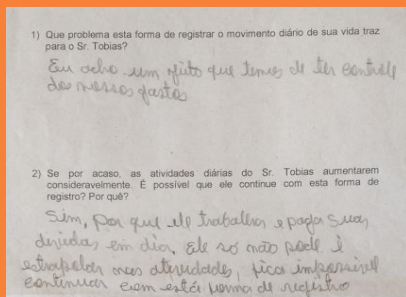 1) Que problema esta forma de registrar o movimento diário de sua vida traz
para o Sr. Tobias?
Eu acho um jeito que temos de ter controle
dos nossos gastos
2) Se por acaso, as atividades diárias do Sr. Tobias aumentarem
consideravelmente. É possível que ele continue com esta forma de
registro? Por quê?
Sim, por que ele trabalha e paga suas
dividas em dia, Ele só não pode é
estrapolar nas atividades, fica impossivel
continuar com está forma de registro